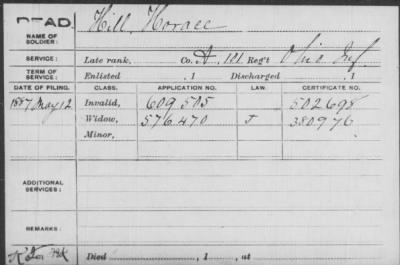 DEAD.
NAME OF SOLDIER: Hill, Horace
SERVICE: Late rank, Co. A, 101 Reg't Ohio Inf
TERM OF SERVICE: Enlisted , 1 Discharged , 1
DATE OF FILING. CLASS. APPLICATION NO. LAW. CERTIFICATE NO.
1887 May 12 Invalid, 609,505 502698
Widow, 576.470 J 380976
Minor,
ADDITIONAL SERVICES:
REMARKS:
Died , 1 , at